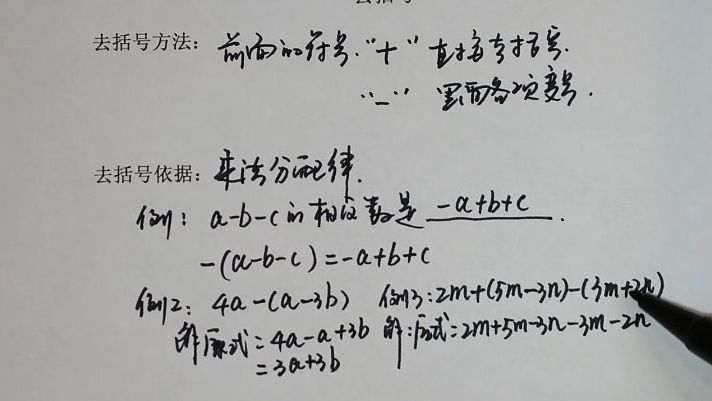 去括号
去括号方法：前面的符号."+" 直接去括号.
"-" 里面各项变号.
去括号依据：乘法分配律.
例1: a-b-c的相反数是 -a+b+c .
-(a-b-c)=-a+b+c
例2: 4a-(a-3b) 例3:2m+(5m-3n)-(3m+2n)
解:原式=4a-a+3b 解:原式=2m+5m-3n-3m-2n
=3a+3b